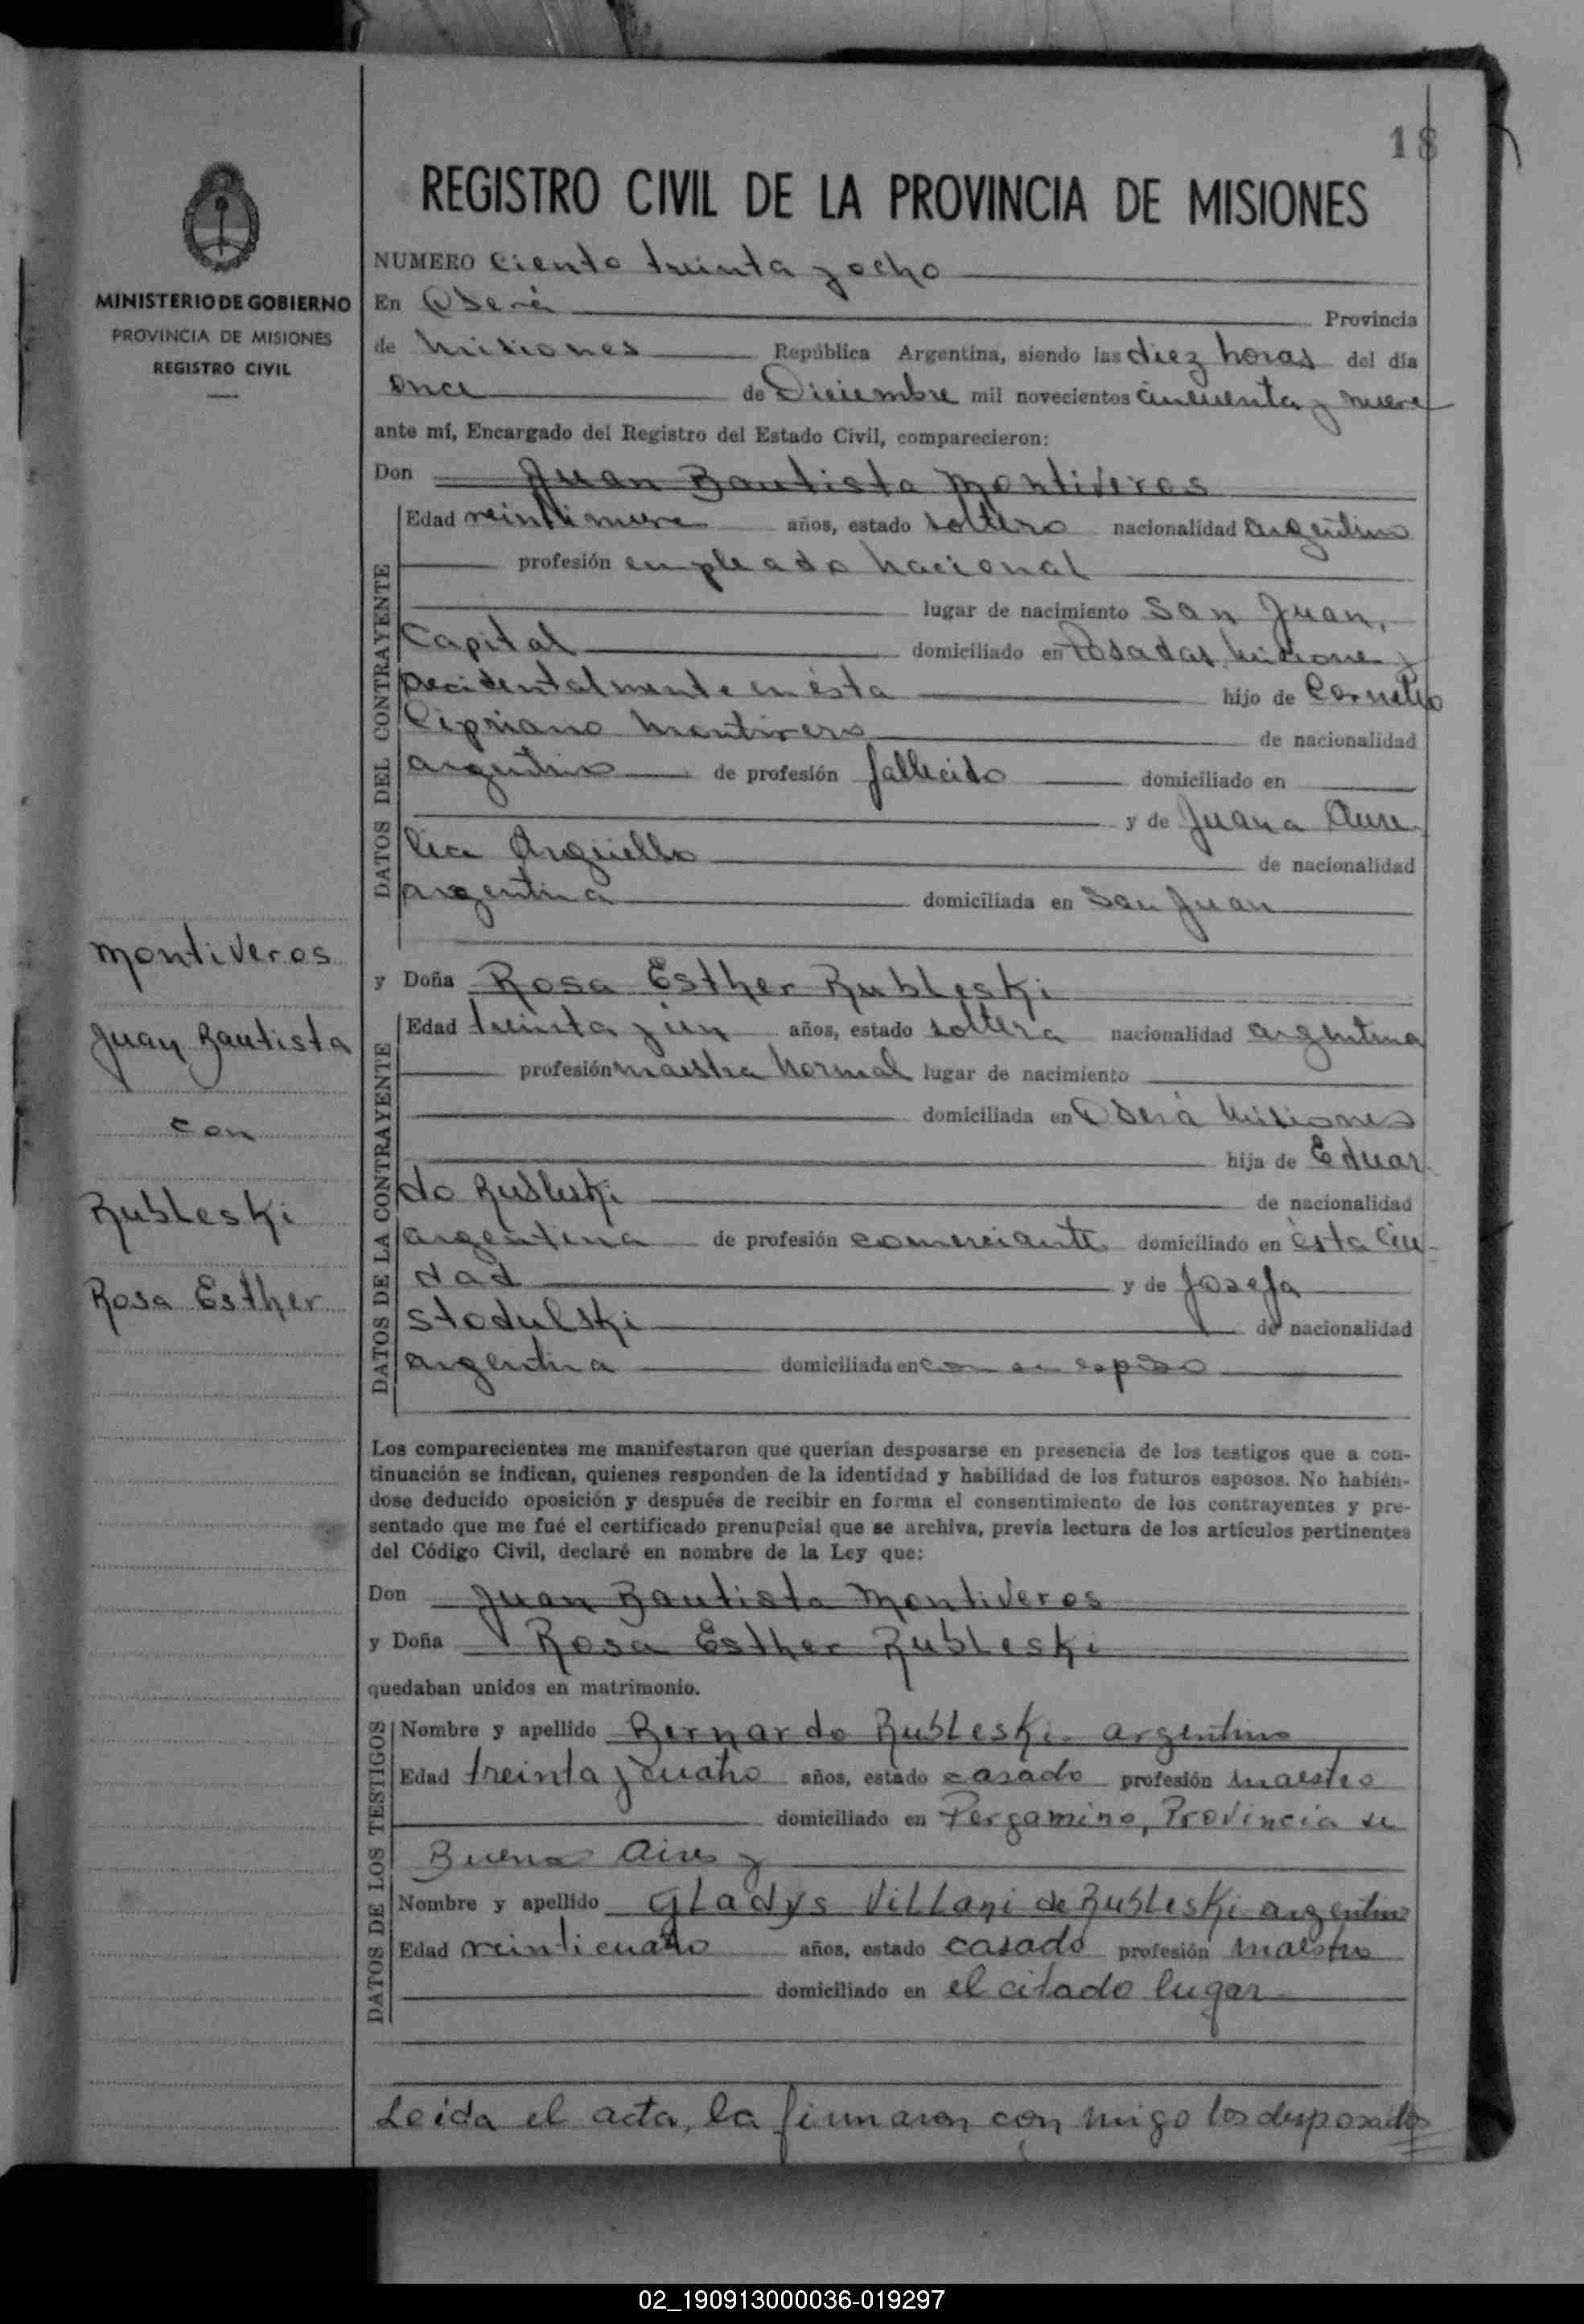 18
REGISTRO CIVIL DE LA PROVINCIA DE MISIONES
MINISTERIO DE GOBIERNO
PROVINCIA DE MISIONES
REGISTRO CIVIL
NUMERO Ciento treinta y ocho
En Oberá Provincia
de Misiones República Argentina, siendo las diez horas del día
once de Diciembre mil novecientos cincuenta y nueve
ante mí, Encargado del Registro del Estado Civil, comparecieron:
Don Juan Bautista Montiveros
DATOS DEL CONTRAYENTE
Edad veintinueve años, estado soltero nacionalidad argentino
profesión empleado nacional
lugar de nacimiento San Juan,
Capital domiciliado en Posadas Misiones y
accidentalmente en ésta hijo de Cornelio
Cipriano Montivero de nacionalidad
argentino de profesión fallecido domiciliado en
y de Juana Aure
lia Argüello de nacionalidad
argentina domiciliada en San Juan
Montiveros
Juan Bautista
con
Rubleski
Rosa Esther
y Doña Rosa Esther Rubleski
DATOS DE LA CONTRAYENTE
Edad treinta y un años, estado soltera nacionalidad argentina
profesión maestra Normal lugar de nacimiento
domiciliada en Oberá Misiones
hija de Eduar
do Rubleski de nacionalidad
argentina de profesión comerciante domiciliado en ésta Ciu-
dad y de Josefa
Stodulski de nacionalidad
argentina domiciliada en con su esposo
Los comparecientes me manifestaron que querían desposarse en presencia de los testigos que a con-
tinuación se indican, quienes responden de la identidad y habilidad de los futuros esposos. No habién-
dose deducido oposición y después de recibir en forma el consentimiento de los contrayentes y pre-
sentado que me fué el certificado prenupcial que se archiva, previa lectura de los artículos pertinentes
del Código Civil, declaré en nombre de la Ley que:
Don Juan Bautista Montiveros
y Doña Rosa Esther Rubleski
quedaban unidos en matrimonio.
DATOS DE LOS TESTIGOS
Nombre y apellido Bernardo Rubleski argentino
Edad treinta y cuatro años, estado casado profesión maestro
domiciliado en Pergamino, Provincia de
Buenos Aires y
Nombre y apellido Gladys Villani de Rubleski argentino
Edad veinticuatro años, estado casado profesión maestro
domiciliado en el citado lugar
Leida el acta, la firmaron con migo los desposados
02_190913000036-019297